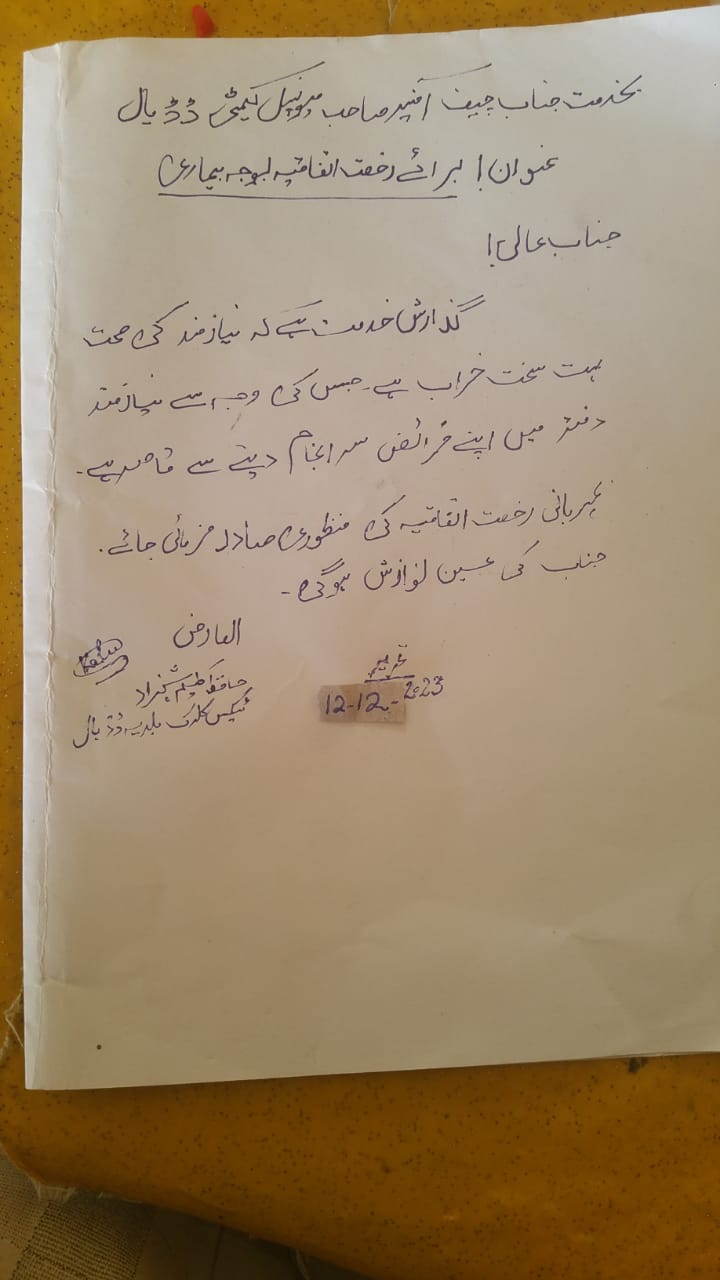 بخدمت جناب چیف آفیسر صاحب میونسپل کمیٹی ڈڈیال
عنوان! برائے رخصت اتفاقیہ بوجہ بیماری
جناب عالی!
گذارش خدمت ہے کہ نیازمند کی صحت
بہت سخت خراب ہے۔ جس کی وجہ سے نیازمند
دفتر میں اپنے فرائض سرانجام دینے سے قاصر ہے۔
مہربانی رخصت اتفاقیہ کی منظوری صادر فرمائی جائے۔
جناب کی عین نوازش ہوگی۔
العارض
حافظ شہزاد
ٹیکس کلرک بلدیہ ڈڈیال
12-12-2023